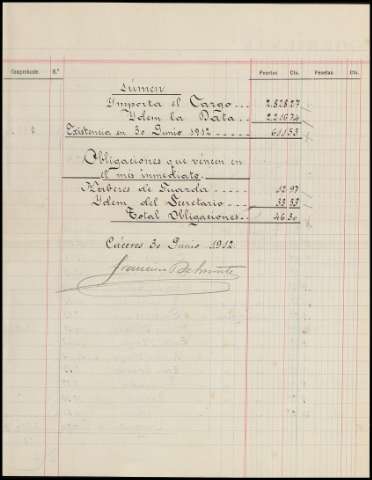 Comprobante N.º Pesetas Cts. Pesetas Cts.
Súmen
Importa el Cargo... 2.828.27
Ydem la Data.. 2.216.74
Existencia en 30 Junio 1912.. 611.53
Obligaciones que vencen en
el mes inmediato.
Haberes de Guarda ..... 12.97
Ydem del Secretario .. 33.33
Total Obligaciones.. 46.30
Cáceres 30 Junio 1912.
Francisco Belmonte